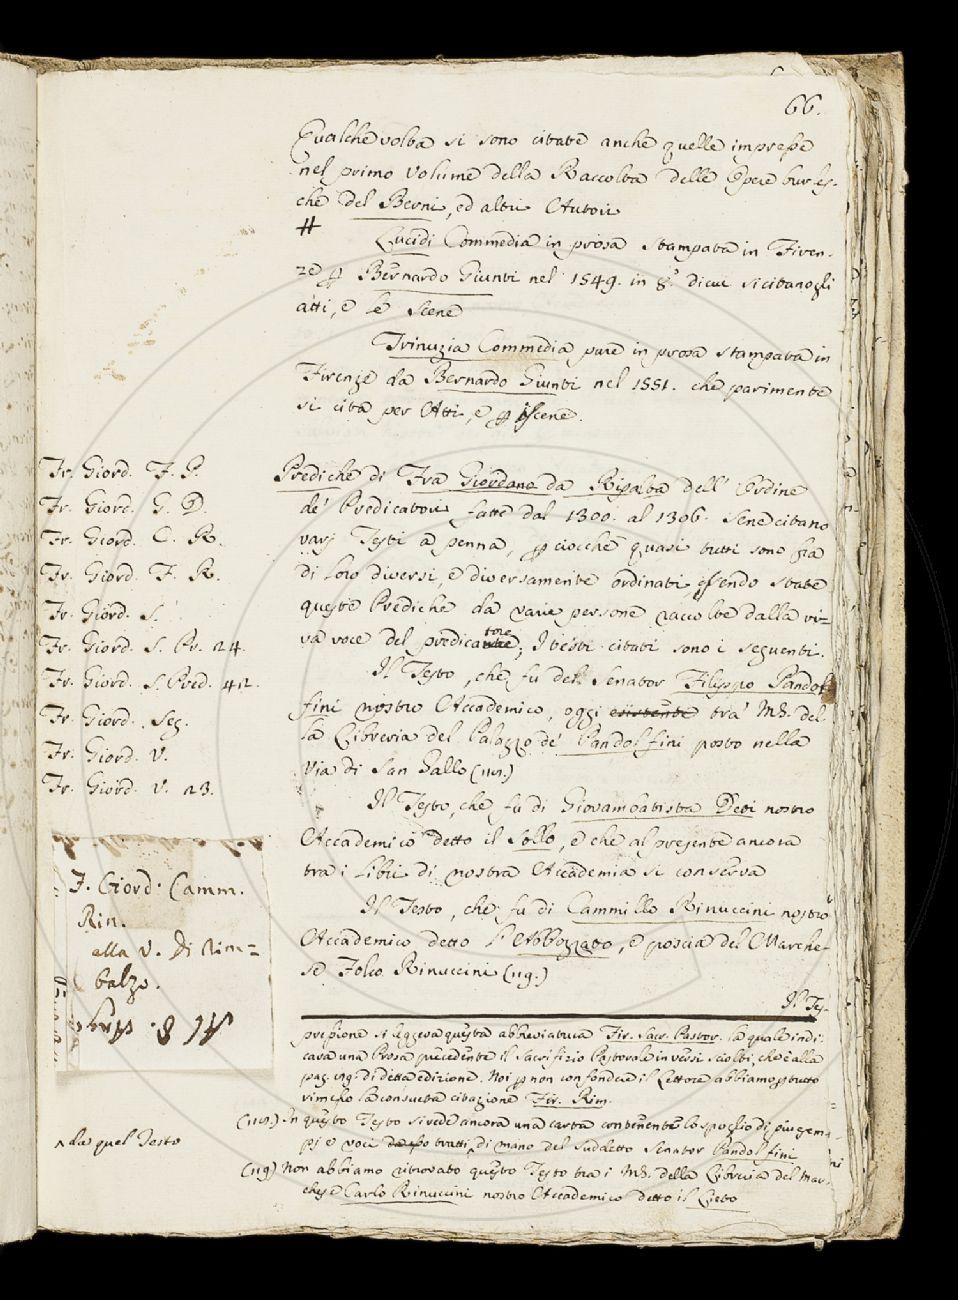 66.
Qualche volta si sono citate anche quelle impresse
nel primo volume della Raccolta delle Opere burles-
che del Berni, ed altri Autori
#
Lucidi Commedia in prosa stampata in Firen-
ze p Bernardo Giunti nel 1549. in 8.° di cui si citano gli
atti, e le Scene
Trinuzia Commedia pure in prosa stampata in
Firenze da Bernardo Giunti nel 1551. che parimente
si cita per Atti, e p iscene.
Fr. Giord. F. P.
Fr. Giord. G. D.
Fr. Giord. C. R.
Fr. Giord. F. R.
Fr. Giord. S.
Fr. Giord. S. Pr. 24.
Fr. Giord. S. Pred. 42.
Fr. Giord. Seg.
Fr. Giord. V.
Fr. Giord. V. 23.
Prediche di Fra Giordano da Ripalta dell' Ordine
de' Predicatori fatte dal 1300. al 1306. Sene citano
varj Testi a penna, p ciocchè quasi tutti sono fra
di loro diversi, e diversamente ordinati essendo state
queste Prediche da varie persone raccolte dalla vi-
va voce del predicatore; I testi citati sono i seguenti.
Il Testo, che fu del Senator Filippo Pandol
fini nostro Accademico, oggi esistente tra' MS. del-
la Libreria del Palazzo de' Pandolfini posto nella
Via di San Gallo (118.)
Il Testo, che fu di Giovambatista Deti nostro
Accademico detto il Sollo, e che al presente ancora
tra i Libri di nostra Accademia si conserva
Il Testo, che fu di Cammillo Rinuccini nostro
Accademico detto l'Abbozzato, e poscia del Marche-
se Folco Rinuccini (119.)
Il Tes-
F. Giord. Camm.
Rin.
alla V. Di Rim=
balzo.
pressione si leggeva questa abbreviatura Fir. Sacr. Pastor. la quale indi-
cava una Prosa precedente il Sacrifizio Pastorale in versi sciolti, che è alla
pag. 119. di detta edizione. Noi p non confondere il Lettore abbiamo p tutto
rimesso la consueta citazione Fir. Rim.
(118.) In questo Testo si vede ancora una carta contenente lo spoglio di più esem-
pj e voci da esso tratti, di mano del suddetto Senator Pandolfini
^ da quel Testo
(119) Non abbiamo ritrovato questo Testo tra i MS. della Libreria del Mar-
chese Carlo Rinuccini nostro Accademico detto il Lieto